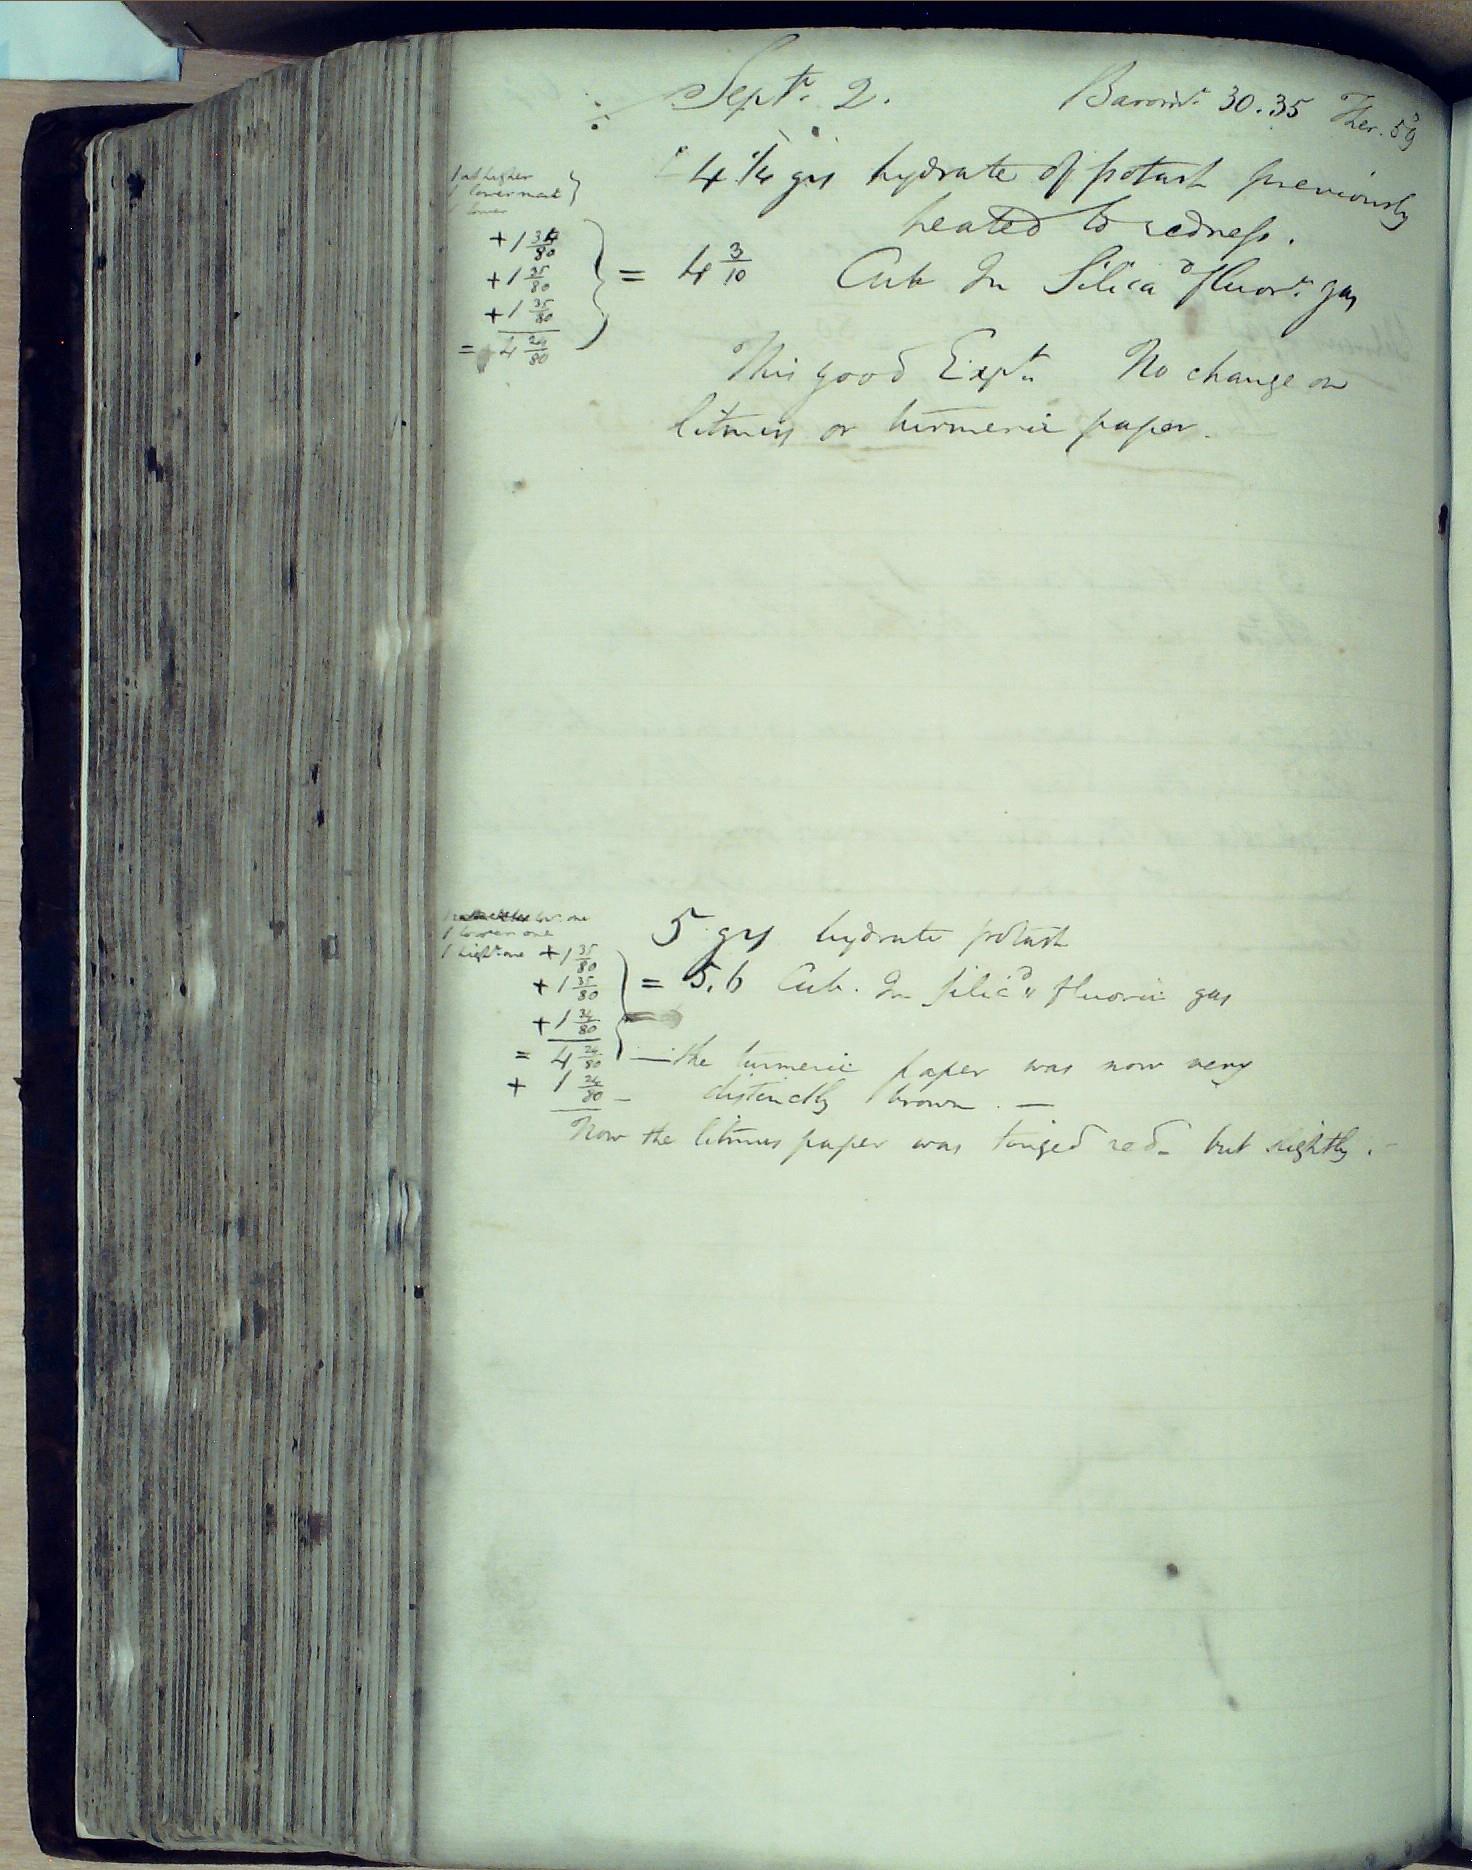 Septr. 2. Baromr. 30.35 Ther. 59°
4 1/4 grs hydrate of potash previously
heated to redness.
1 at higher
1 lower next
1 lower
+ 1 34/80
+ 1 35/80
+ 1 35/80
= 4 24/80
= 4 3/10 Cub In Silicad fluorc. gas
This good Expt. No change on
litmus or turmeric paper.
5 grs hydrate potash
low. one
1 lower one
1 high. one + 1 35/80
+ 1 35/80
+ 1 34/80
= 4 24/80
+ 1 24/80
= 5.6 Cub. In silicd fluoric gas
— the turmeric paper was now very
distinctly brown. —
Now the litmus paper was tinged red - but slightly. -